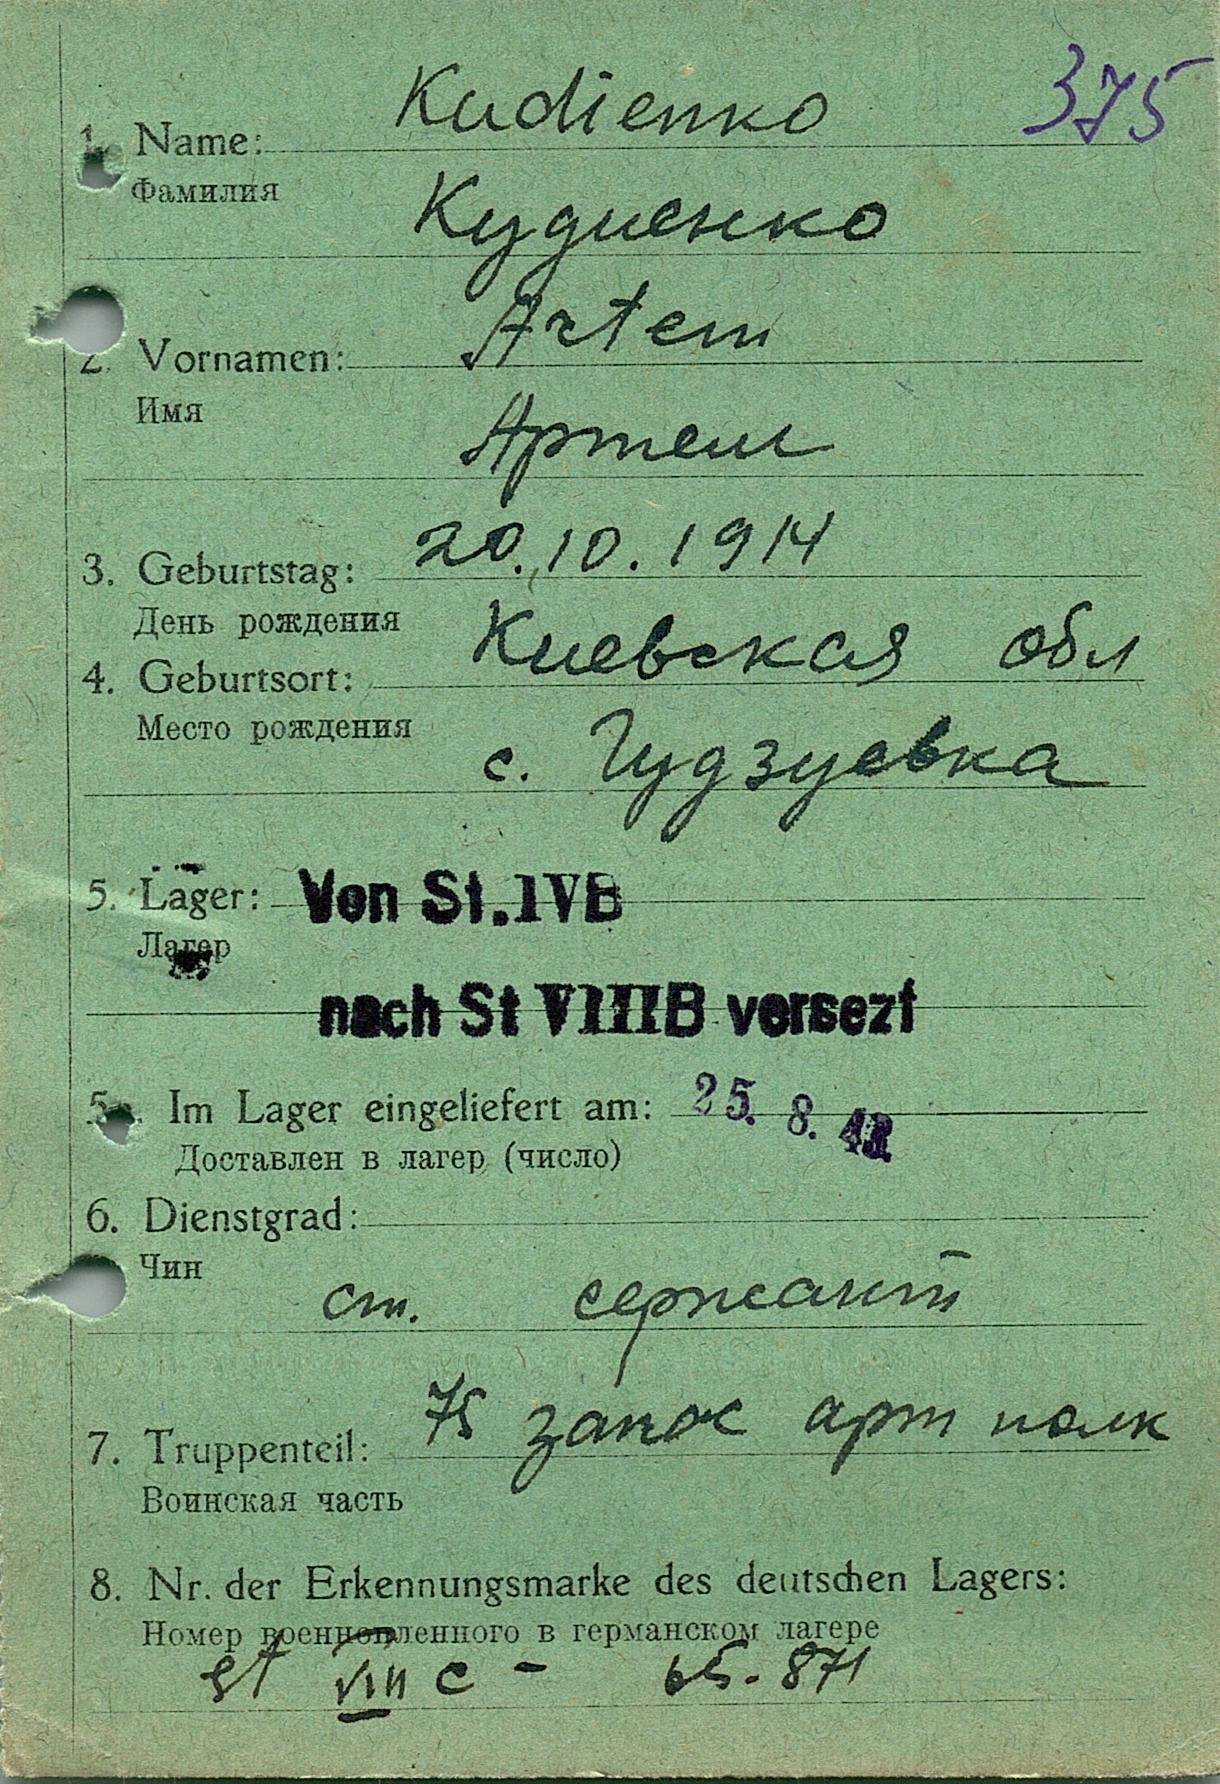 375
Kudienko
1. Name:
Фамилия
Кудиенко
Artem
2. Vornamen:
Имя
Артем
3. Geburtstag: 20.10.1914
День рождения
Киевская обл
4. Geburtsort:
Место рождения
с. Гудзуевка
5. Lager: Von St. IVB
Лагер
nach St VIIIB versezt
5a. Im Lager eingeliefert am: 25. 8.
Доставлен в лагер (число)
6. Dienstgrad:
Чин
ст. сержант
7. Truppenteil: 75 запас арт полк
Воинская часть
8. Nr. der Erkennungsmarke des deutschen Lagers:
Номер военнопленного в германском лагере
St VIII C - 65.871